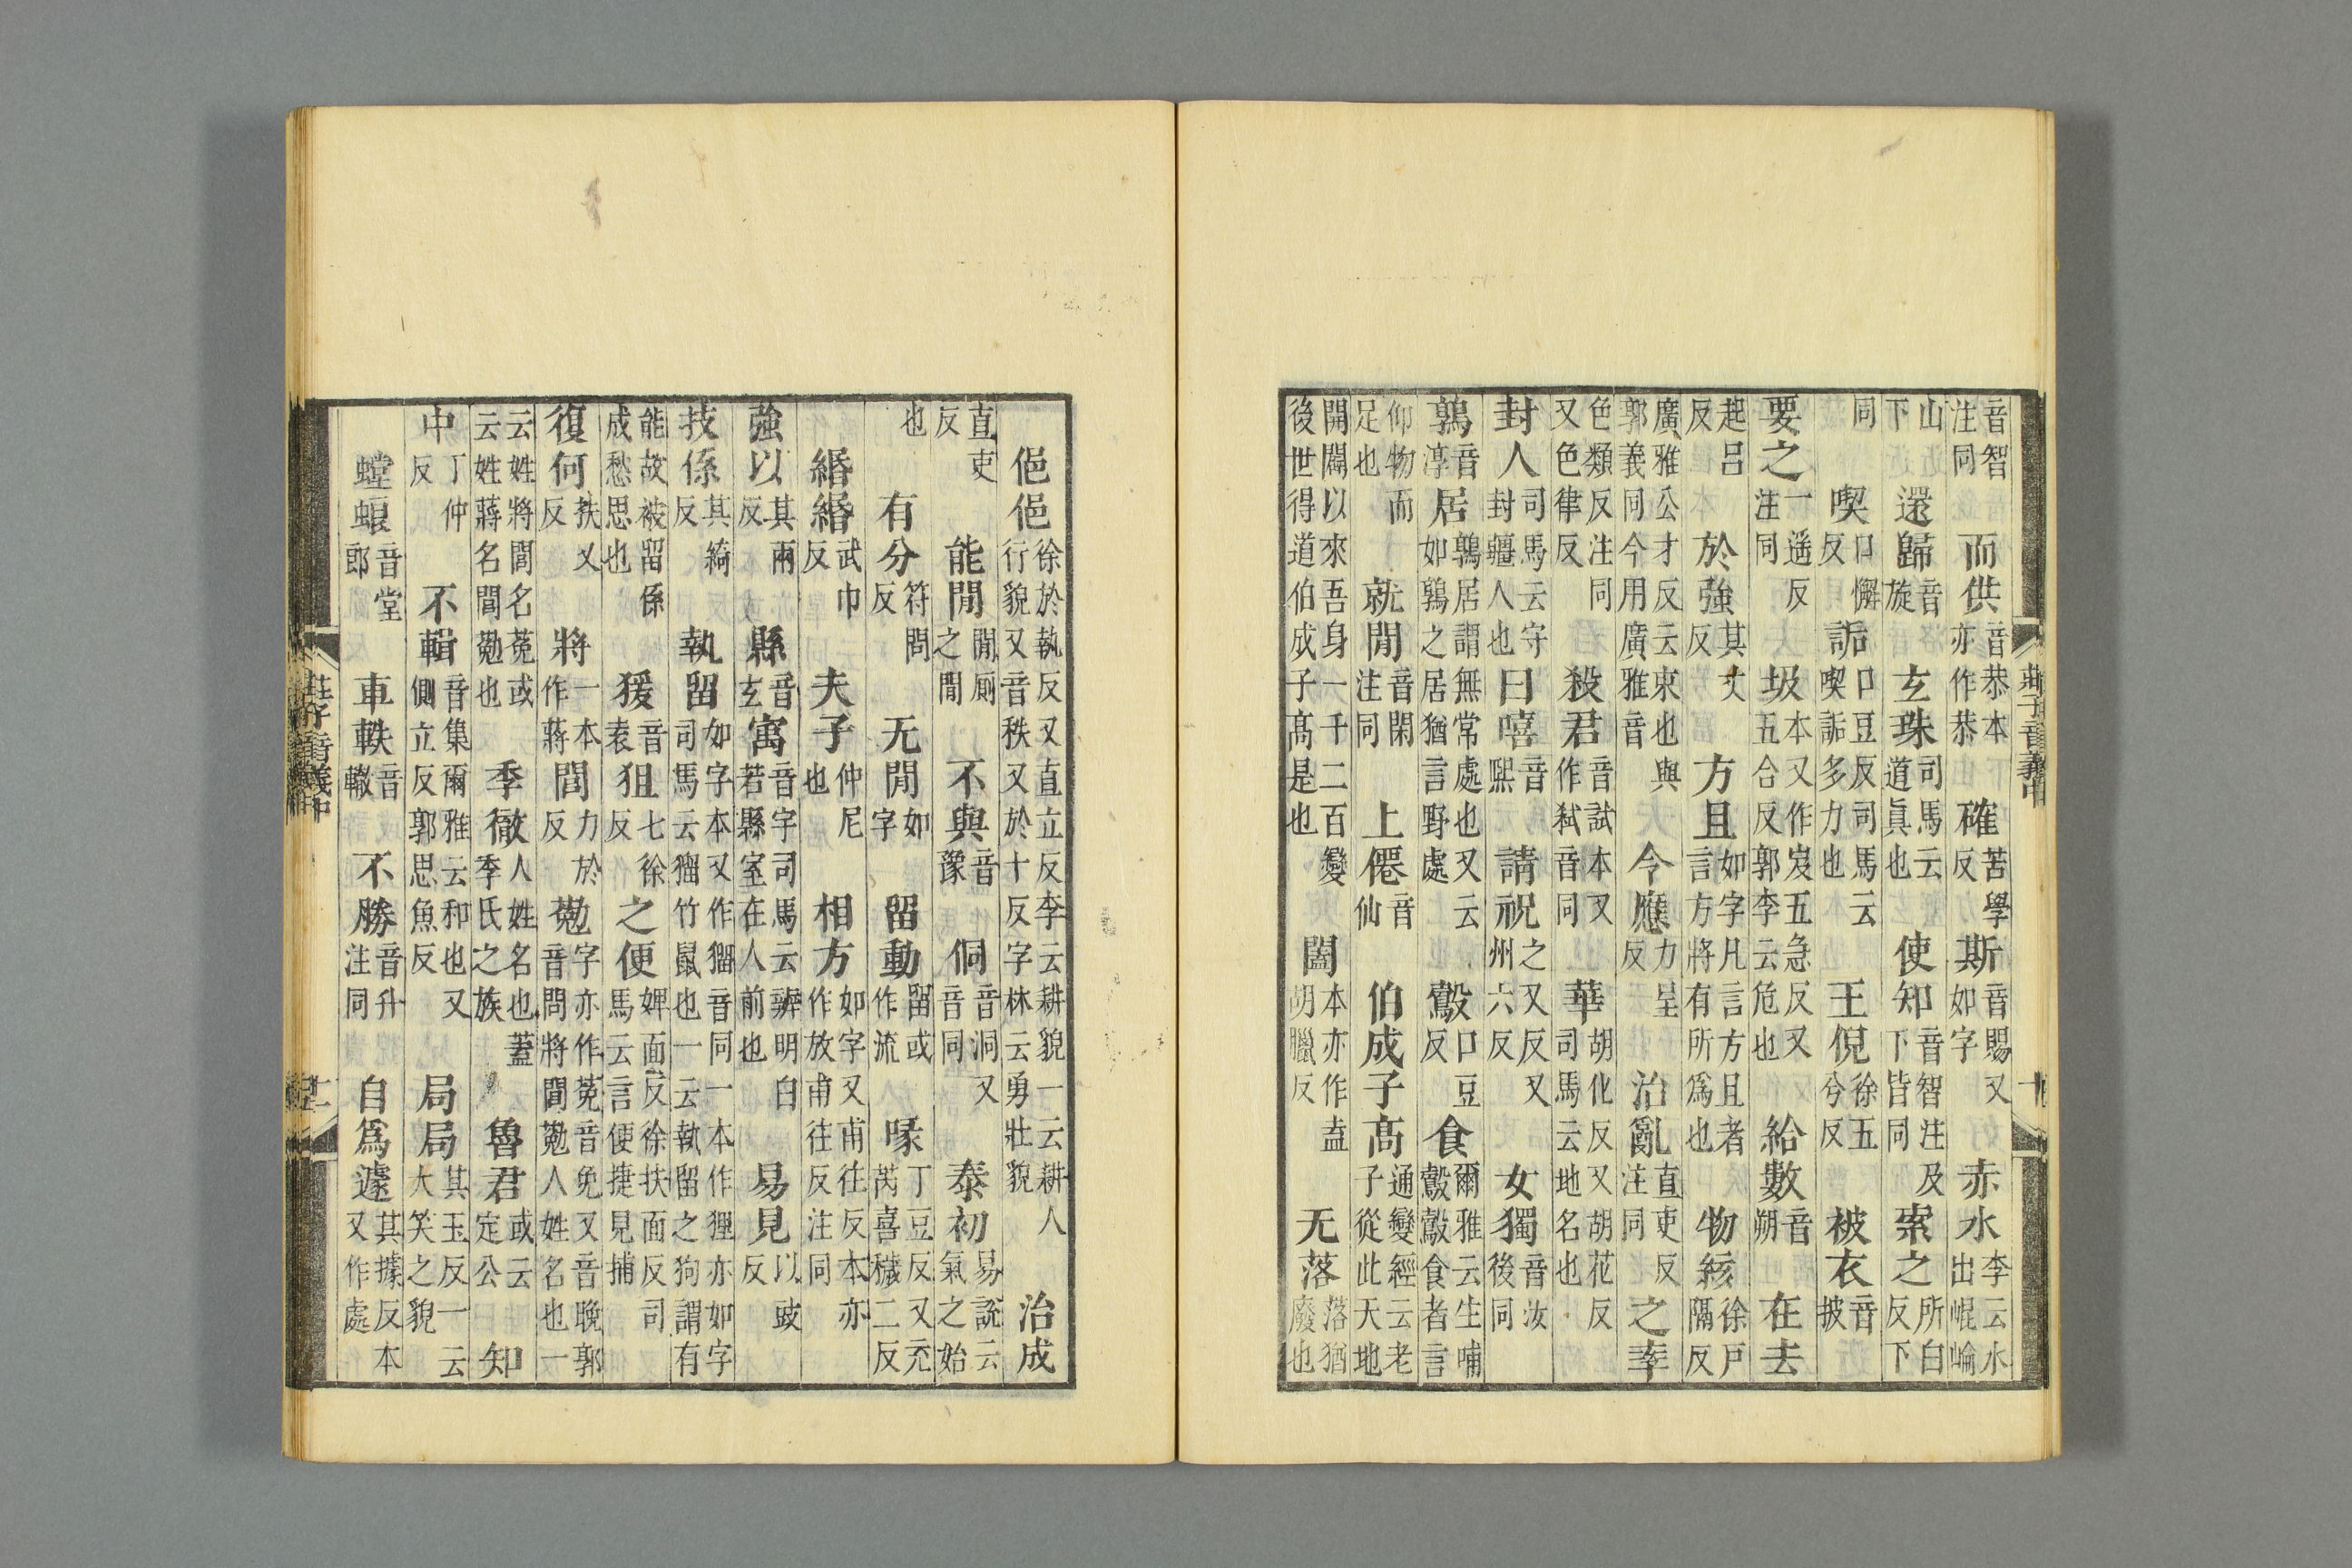 音智注同　而供音恭本亦作恭　確苦學反　斯音賜又如字　赤水李云水出崐崘
山下　還歸音旋　玄珠司馬云道眞也　使知音智注及下皆同　索之所白反下
同　喫口懈反　詬口豆反司馬云喫詬多力也　王倪徐五兮反　被衣音披
要之一遥反注同　圾本又作岌五急反又五合反郭李云危也　給數音朔　在去
起呂反　於強其丈反　方且如字凡言方且者言方將有所爲也　物絯徐戸隔反
廣雅公才反云束也與郭義同今用廣雅音　今應力呈反　治亂直吏反注同　之率
色類反注同又色律反　殺君音試本又作弑音同　華胡化反又胡花反司馬云地名也
封人司馬云守封疆人也　曰嘻音熙　請祝之又反又州六反　女獨音汝後同
鶉音淳　居鶉居謂無常處也又云如鶉之居猶言野處　鷇口豆反　食爾雅云生哺鷇鷇食者言
仰物而足也　就閒音閑注同　上僊音仙　伯成子高通變經云老子從此天地
開闢以來吾身一千二百變後世得道伯成子高是也　闔本亦作盍胡臘反　无落落猶廢也
莊子音義中
俋俋徐於執反又直立反李云耕貌一云耕人行貌又音秩又於十反字林云勇壯貌　治成
直吏反　能閒閒厠之閒　不與音豫　侗音洞又音同　泰初易説云氣之始
也　有分符問反　无閒如字　留動留或作流　喙丁豆反又充芮喜穢二反
緡緡武巾反　夫子仲尼也　相方如字又甫往反本亦作放甫往反注同
強以其兩反　縣音玄　寓音宇司馬云辨明白若縣室在人前也　易見以豉反
技係其綺反　執留如字本又作㺄音同一本作狸亦如字司馬云㺄竹鼠也一云執留之狗謂有
能故被留係成愁思也　猨音袁　狙七徐反　之便婢面反徐扶面反司馬云言便捷見捕
復何扶又反　將一本作蔣　閭力於反　葂字亦作莬音免又音晚郭音問將閭葂人姓名也一
云姓將閭名莬或云姓蔣名閭葂也　季徹人姓名也蓋季氏之族　魯君或云定公　知
中丁仲反　不輯音集爾雅云和也又側立反郭思魚反　局局其玉反一云大笑之貌
螳蜋音堂郎　車軼音轍　不勝音升注同　自爲遽其據反本又作處
莊子音義中